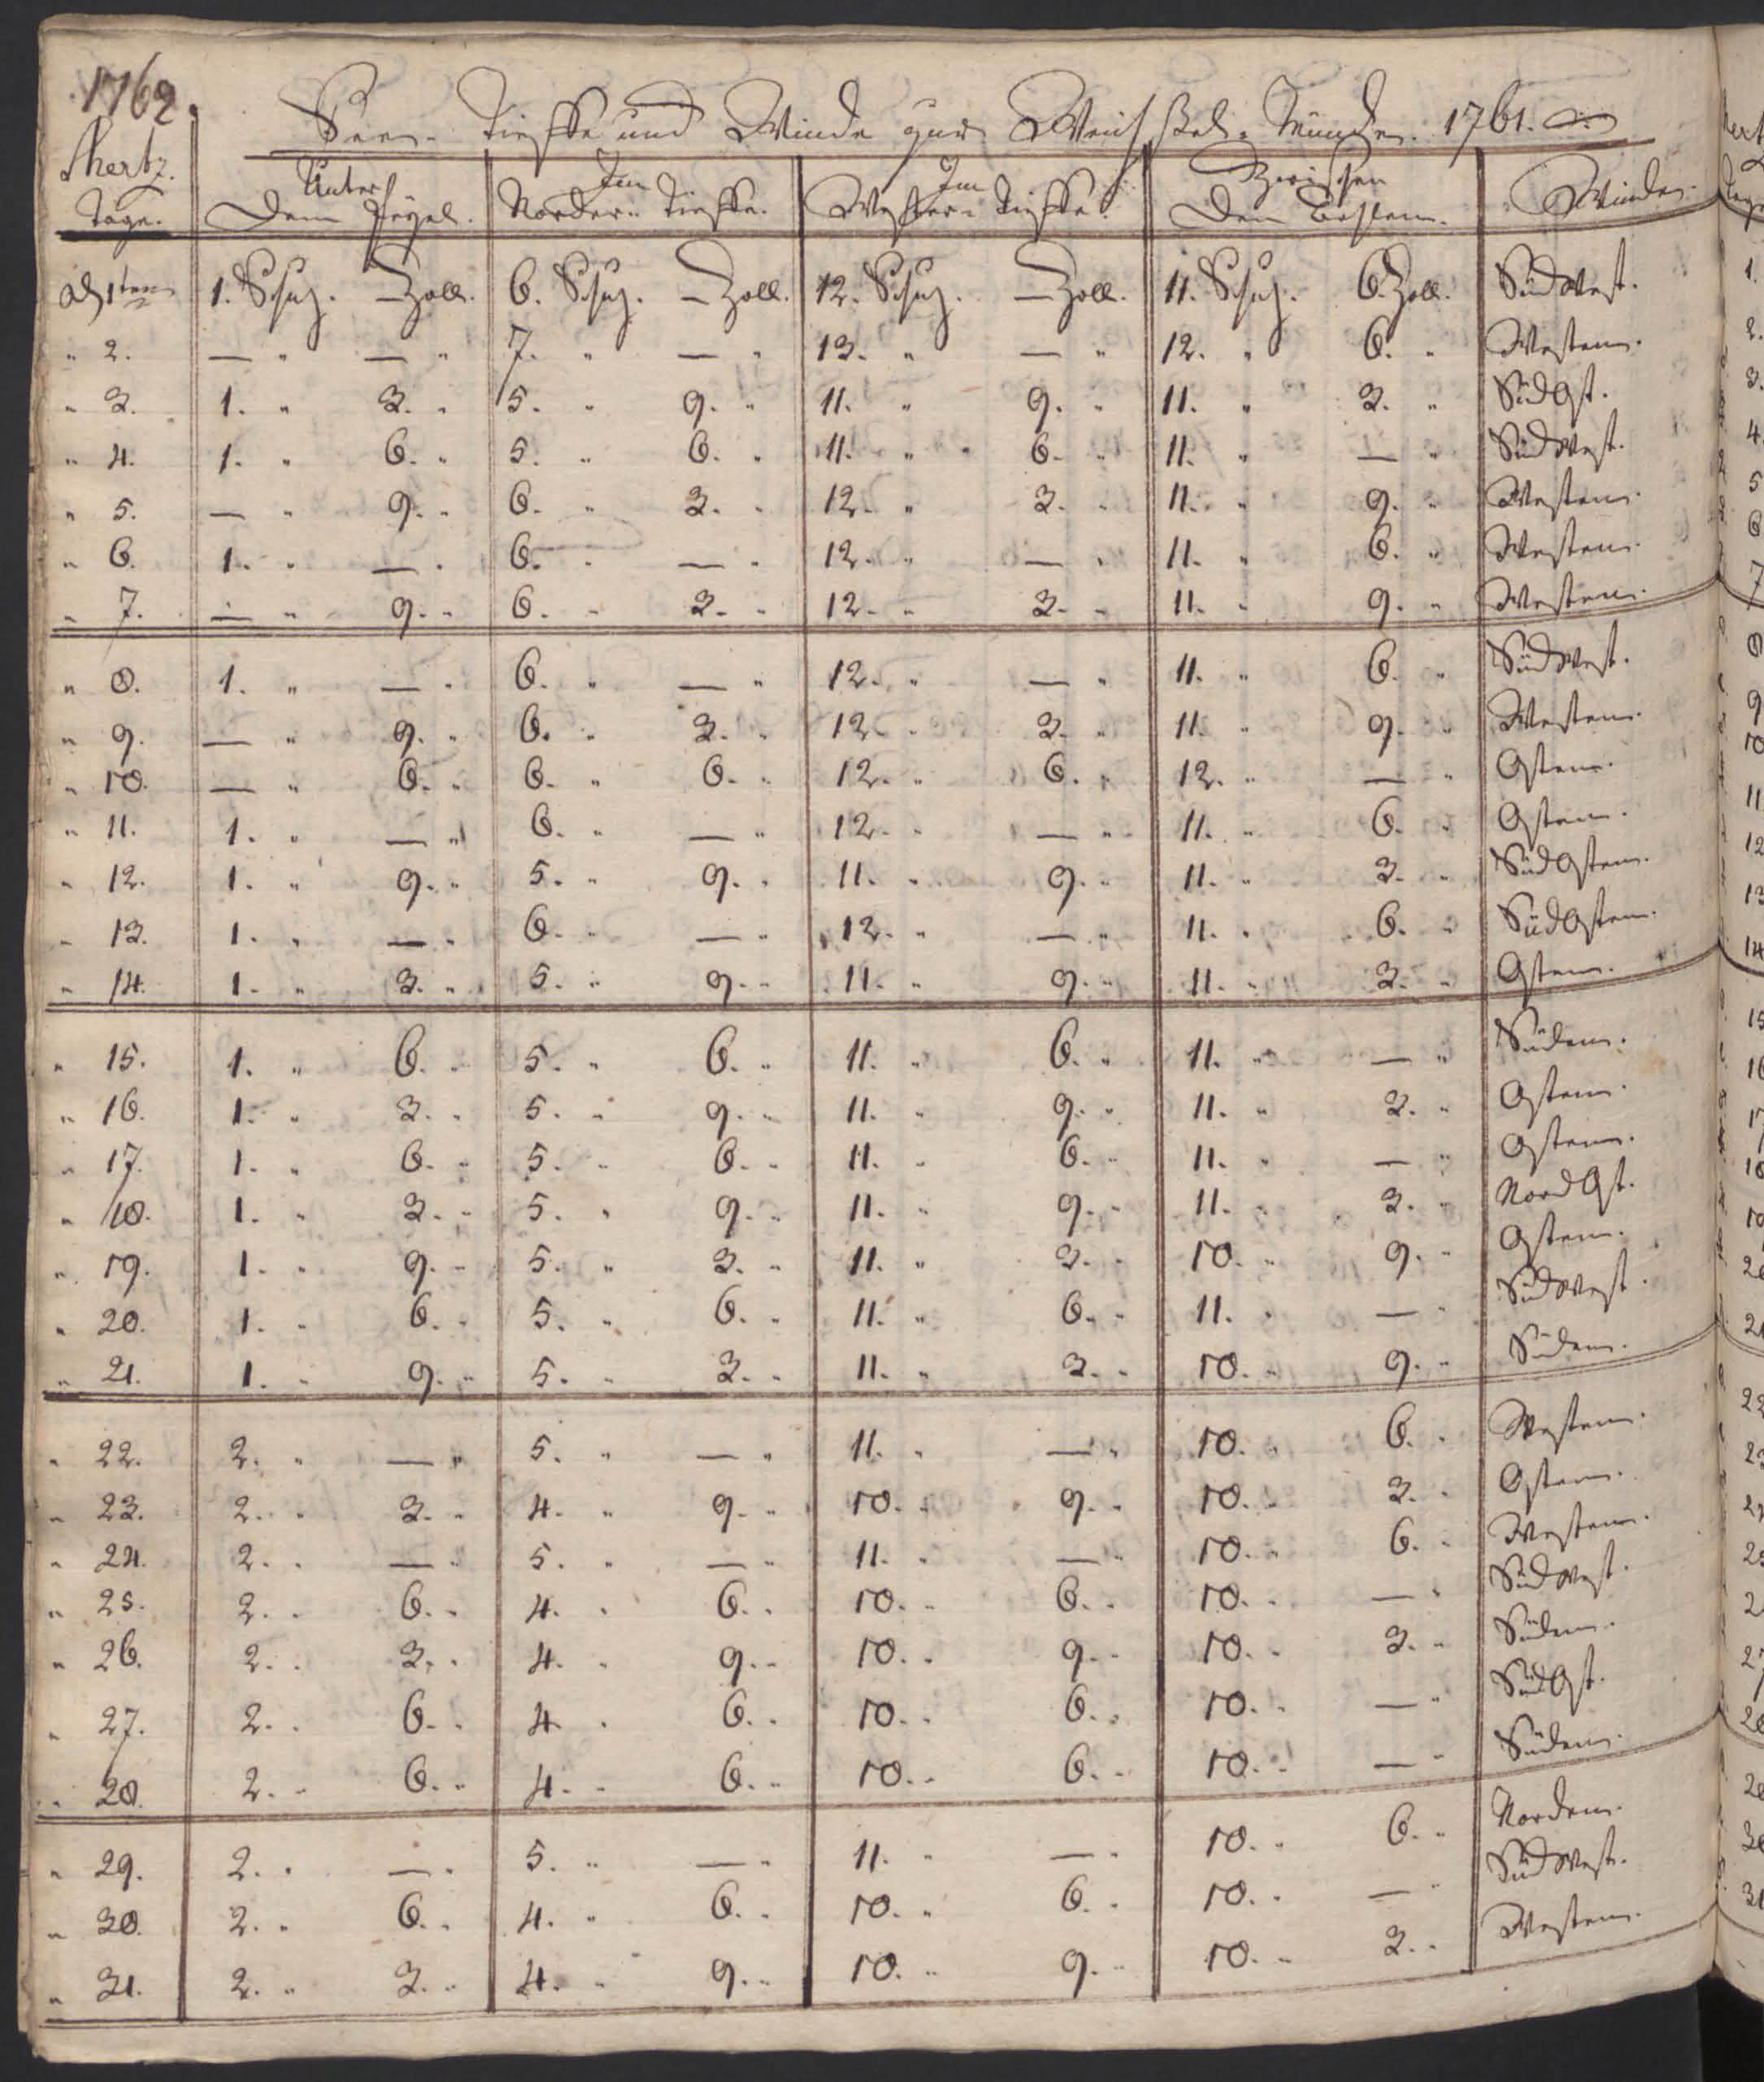 1762.
See- Tieffe und Winde zur Weichßel-Münde. 1761.
Mertz.
Tage. Unter dem Pegel. Im Norder-Tieffe. Im Wester-Tieffe. Zwischen den Winde.
1ten 1. Schuh. — Zoll. 6. Schuh. — Zoll. 12. Schuh. — Zoll. 11. Schuh. 6. Zoll. Südwest.
" 2. — " — " 7. " — " 13. " — " 12. " 6. " Westen.
" 3. 1. " 3. " 5. " 9. " 11. " 9. " 11. " 3. " SüdOst.
" 4. 1. " 6. " 5. " 6. " 11. " 6. " 11. " — " Südwest.
" 5. — " 9. " 6. " 3. " 12. " 3. " 11. " 9. " Westen.
" 6. 1. " — " 6. " — " 12. " — " 11. " 6. " Westen.
" 7. — " 9. " 6. " 3. " 12. " 3. " 11. " 9. " Westen.
" 8. 1. " — " 6. " — " 12. " — " 11. " 6. " Südwest.
" 9. — " 9. " 6. " 3. " 12. " 3. " 11. " 9. " Westen.
" 10. — " 6. " 6. " 6. " 12. " 6. " 12. " — " Osten.
" 11. 1. " — " 6. " — " 12. " — " 11. " 6. " Osten.
" 12. 1. " 9. " 5. " 9. " 11. " 9. " 11. " 3. " SüdOsten.
" 13. 1. " — " 6. " — " 12. " — " 11. " 6. " SüdOsten.
" 14. 1. " 3. " 5. " 9. " 11. " 9. " 11. " 3. " Osten.
" 15. 1. " 6. " 5. " 6. " 11. " 6. " 11. " — " Süden.
" 16. 1. " 3. " 5. " 9. " 11. " 9. " 11. " 3. " Osten.
" 17. 1. " 6. " 5. " 6. " 11. " 6. " 11. " — " Osten.
" 18. 1. " 3. " 5. " 9. " 11. " 9. " 11. " 3. " NordOst.
" 19. 1. " 9. " 5. " 3. " 11. " 3. " 10. " 9. " Osten.
" 20. 1. " 6. " 5. " 6. " 11. " 6. " 11. " — " Südwest.
" 21. 1. " 9. " 5. " 3. " 11. " 3. " 10. " 9. " Süden.
" 22. 2. " — " 5. " — " 11. " — " 10. " 6. " Westen.
" 23. 2. " 3. " 4. " 9. " 10. " 9. " 10. " 3. " Osten.
" 24. 2. " — " 5. " — " 11. " — " 10. " 6. " Westen.
" 25. 2. " 6. " 4. " 6. " 10. " 6. " 10. " — " Südwest.
" 26. 2. " 3. " 4. " 9. " 10. " 9. " 10. " 3. " Süden.
" 27. 2. " 6. " 4. " 6. " 10. " 6. " 10. " — " SüdOst.
" 28. 2. " 6. " 4. " 6. " 10. " 6. " 10. " — " Süden.
" 29. 2. " — " 5. " — " 11. " — " 10. " 6. " Norden.
" 30. 2. " 6. " 4. " 6. " 10. " 6. " 10. " — " Südwest.
" 31. 2. " 3. " 4. " 9. " 10. " 9. " 10. " 3. " Westen.